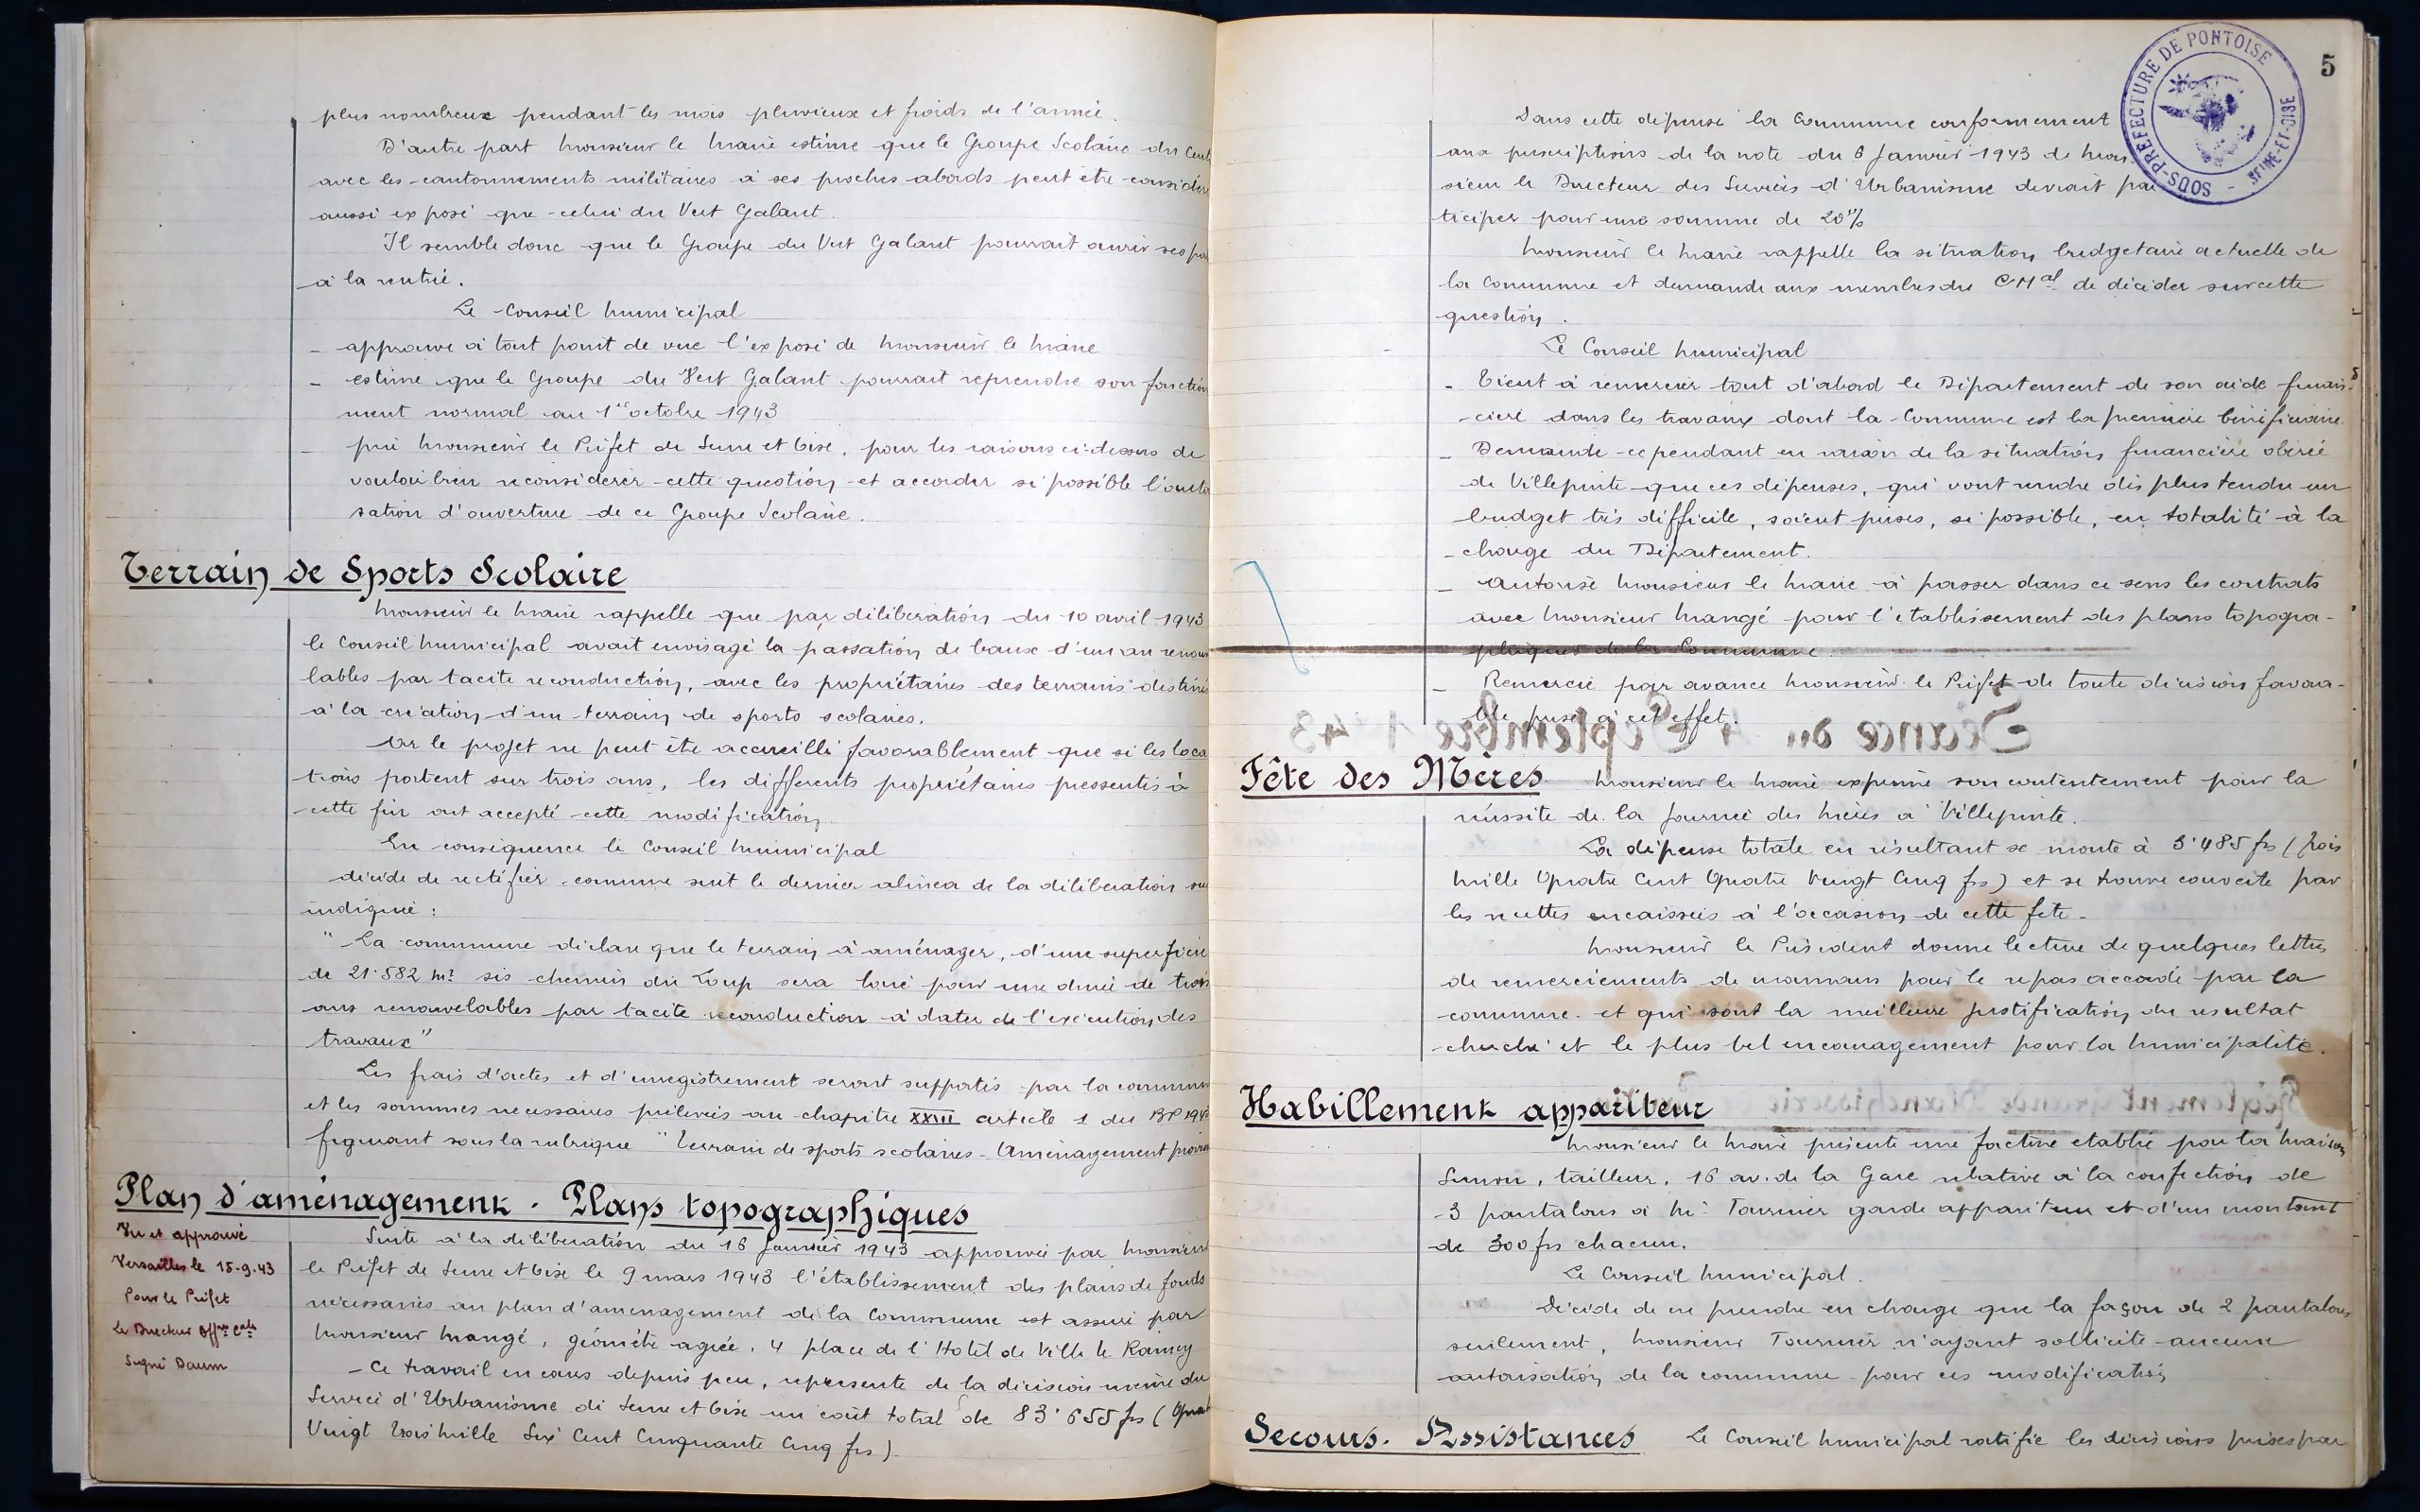 plus nombreux pendant les mois pluvieux et froids de l'année.
D'autre part Monsieur le Maire estime que le Groupe Scolaire du Cent
avec les cantonnements militaires à ses proches abords peut être considér
aussi exposé que celui du Vert Galant.
Il semble donc que le Groupe du Vert Galant pourrait ouvrir ses po
à la rentrée.
Le Conseil Municipal
- approuve à tout point de vue l'exposé de Monsieur le Maire
- estime que le Groupe du Vert Galant pourrait reprendre son fonction
nement normal au 1er octobre 1943
- prie Monsieur le Préfet de Seine et Oise, pour les raisons ci-dessus de
vouloir bien reconsidérer cette question et accorder si possible l'autori
sation d'ouverture de ce Groupe Scolaire.
Terrain de Sports Scolaire
Monsieur le Maire rappelle que par délibération du 10 avril 1943
le Conseil Municipal avait envisagé la passation de baux d'un an renou
lables par tacite reconduction, avec les propriétaires des terrains destinés
à la création d'un terrain de sports scolaires.
Or le projet ne peut être accueilli favorablement que si les loca
tions portent sur trois ans, les différents propriétaires pressentis à
cette fin ont accepté cette modification.
En conséquence le Conseil Municipal
décide de rectifier comme suit le dernier alinéa de la délibération sus
indiquée :
" La commune déclare que le terrain à aménager, d'une superficie
de 21.582 m² sis chemin du Loup sera loué pour une durée de trois
ans renouvelables par tacite reconduction à dater de l'exécution des
travaux"
Les frais d'actes et d'enregistrement seront supportés par la commune
et les sommes nécessaires prélevées au chapitre XXVII article 1 du BP 194
figurant sous la rubrique " Terrain de sports scolaires - Aménagement provi
Plan d'aménagement . Plans topographiques
Vu et approuvé
Versailles le 15-9-43
Pour le Préfet
Le Directeur
Signé Daum
Suite à la délibération du 16 Janvier 1943 approuvée par Monsieur
le Préfet de Seine et Oise le 9 mars 1943 l'établissement des plans de fonds
nécessaires au plan d'aménagement de la Commune est assuré par
Monsieur Mangé, géomètre agréé, 4 place de l'Hotel de Ville le Raincy
- Ce travail en cours depuis peu, représente de la décision même du
Service d'Urbanisme de Seine et Oise un coût total de 83.655 frs ( Quat
Vingt Trois Mille Six Cent Cinquante Cinq frs ).
5
SOUS-PRÉFECTURE DE PONTOISE
SEINE-ET-OISE
Dans cette dépense la Commune conformément
aux prescriptions de la note du 6 Janvier 1943 de Mon-
sieur le Directeur des Services d'Urbanisme devrait par
ticiper pour une somme de 20%
Monsieur le Maire rappelle la situation budgétaire actuelle de
la Commune et demande aux membres du CMal de décider sur cette
question.
Le Conseil Municipal
- Tient à remercier tout d'abord le Département de son aide finan-
cière dans les travaux dont la Commune est la première bénéficiaire.
- Demande cependant en raison de la situation financière obérée
de Villepinte que ces dépenses, qui vont rendre des plus tendu un
budget très difficile, soient prises, si possible, en totalité à la
charge du Département.
- Autorise Monsieur le Maire à passer dans ce sens les contrats
avec Monsieur Mangé pour l'établissement des plans topogra-
phiques de la Commune.
- Remercie par avance Monsieur le Préfet de toute décision favora-
ble prise à cet effet.
Fête des Mères Monsieur le Maire exprime son contentement pour la
réussite de la Journée des Mères à Villepinte.
La dépense totale en résultant se monte à 3.485 frs ( Trois
Mille Quatre Cent Quatre Vingt Cinq frs ) et se trouve couverte par
les recettes encaissées à l'occasion de cette fete.
Monsieur le Président donne lecture de quelques lettres
de remerciements de mamans pour le repas accordé par la
commune et qui sont la meilleure justification du resultat
cherché et le plus bel encouragement pour la Municipalité.
Habillement appariteur
Monsieur le Maire présente une facture etablie par la Maison
Simon, tailleur, 16 av. de la Gare relative à la confection de
3 pantalons à Mr Tournier garde appariteur et d'un montant
de 300 frs chacun.
Le Conseil Municipal.
Décide de ne prendre en charge que la façon de 2 pantalons
seulement, Monsieur Tournier n'ayant sollicité aucune
autorisation de la commune pour ces modification
Secours. Assistances Le Conseil Municipal ratifie les décisions prises par